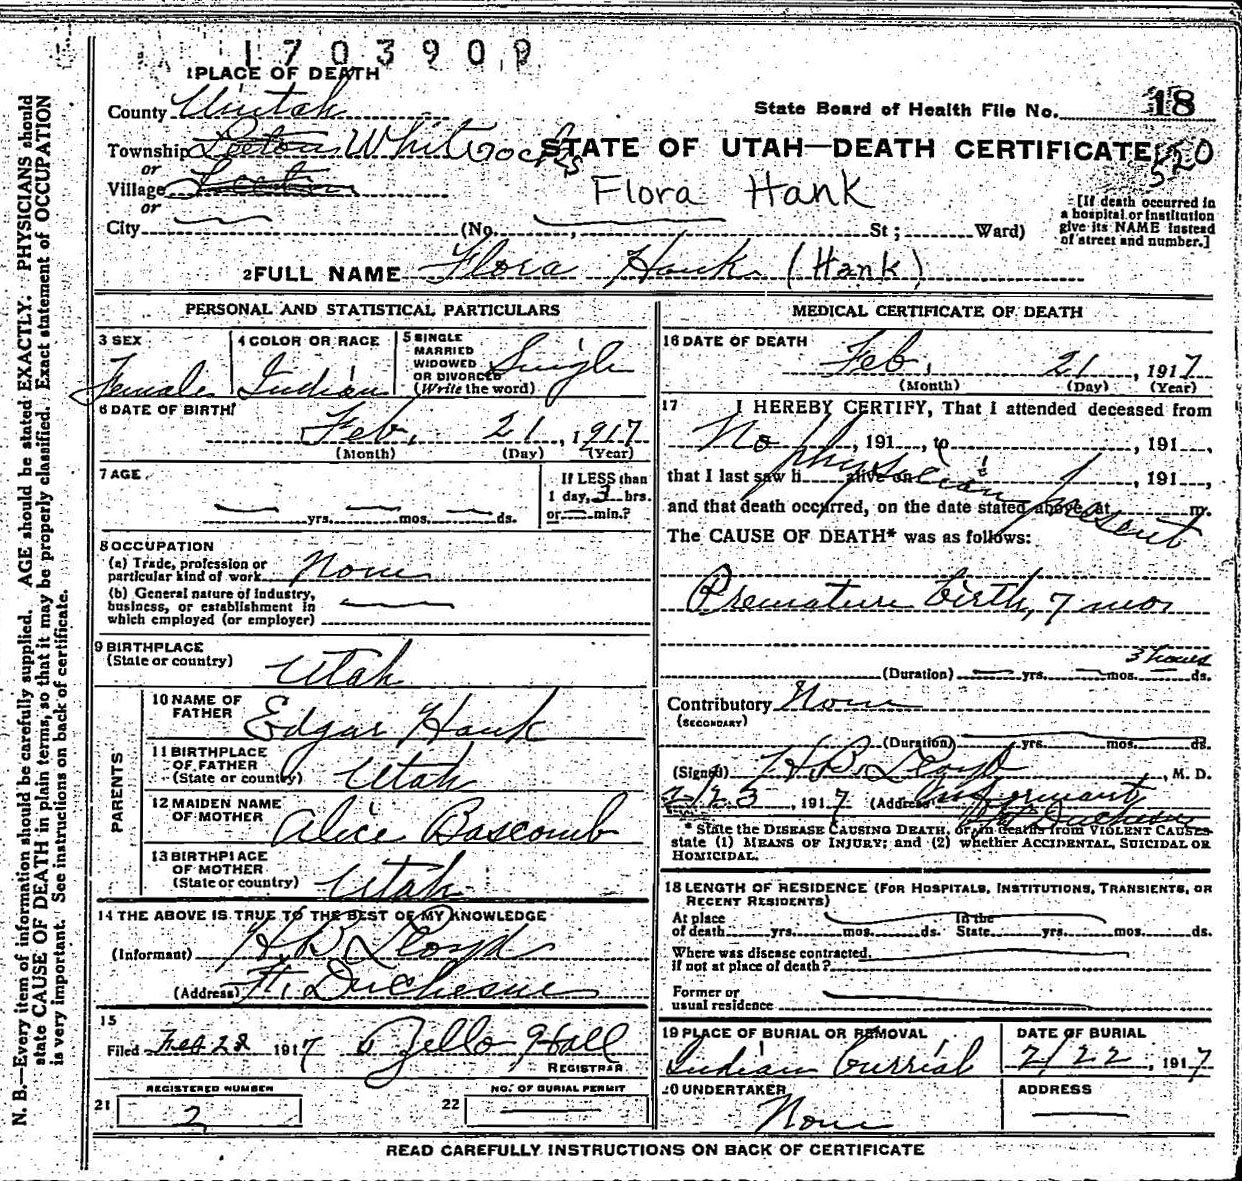 1703909
1 PLACE OF DEATH
County Uintah
State Board of Health File No. 18
Township Leeton Whiterocks
STATE OF UTAH—DEATH CERTIFICATE
520
or
Village Leeton
Flora Hank
or
City (No. , St ; Ward)
[If death occurred in
a hospital or institution
give its NAME instead
of street and number.]
2 FULL NAME Flora Hank (Hank)
PERSONAL AND STATISTICAL PARTICULARS
3 SEX
Female
4 COLOR OR RACE
Indian
5 SINGLE
MARRIED
WIDOWED
OR DIVORCED
(Write the word)
Single
6 DATE OF BIRTH
Feb. 21, 1917
(Month) (Day) (Year)
7 AGE
yrs. mos. ds.
If LESS than
1 day, 3 hrs.
or min.?
8 OCCUPATION
(a) Trade, profession or
particular kind of work None
(b) General nature of industry,
business, or establishment in
which employed (or employer)
9 BIRTHPLACE
(State or country)
Utah
PARENTS
10 NAME OF
FATHER
Edgar Hank
11 BIRTHPLACE
OF FATHER
(State or country)
Utah
12 MAIDEN NAME
OF MOTHER
Alice Bascomb
13 BIRTHPLACE
OF MOTHER
(State or country)
Utah
14 THE ABOVE IS TRUE TO THE BEST OF MY KNOWLEDGE
(Informant) H B Lloyd
(Address) Ft. Duchesne
15
Filed Feb 28 1917 Zello Hall
REGISTRAR
REGISTERED NUMBER
21 2
NO. OF BURIAL PERMIT
22
MEDICAL CERTIFICATE OF DEATH
16 DATE OF DEATH
Feb. 21, 1917
(Month) (Day) (Year)
17 I HEREBY CERTIFY, That I attended deceased from
, 191 , to , 191 ,
that I last saw h alive on , 191 ,
and that death occurred, on the date stated above, at m.
No physician present
The CAUSE OF DEATH* was as follows:
Premature birth, 7 mos
3 hours
(Duration) yrs. mos. ds.
Contributory None
(SECONDARY)
(Duration) yrs. mos. ds.
(Signed) H B Lloyd, M. D.
2/23, 1917 (Address) Informant
Ft Duchesne
* State the DISEASE CAUSING DEATH, or, in deaths from VIOLENT CAUSES
state (1) MEANS OF INJURY; and (2) whether ACCIDENTAL, SUICIDAL OR
HOMICIDAL.
18 LENGTH OF RESIDENCE (FOR HOSPITALS, INSTITUTIONS, TRANSIENTS, OR
RECENT RESIDENTS)
At place In the
of death yrs. mos. ds. State yrs. mos. ds.
Where was disease contracted,
if not at place of death?
Former or
usual residence
19 PLACE OF BURIAL OR REMOVAL
Indian burrial
DATE OF BURIAL
2/22, 1917
20 UNDERTAKER
None
ADDRESS
READ CAREFULLY INSTRUCTIONS ON BACK OF CERTIFICATE
N. B.—Every item of information should be carefully supplied. AGE should be stated EXACTLY. PHYSICIANS should
state CAUSE OF DEATH in plain terms, so that it may be properly classified. Exact statement of OCCUPATION
is very important. See instructions on back of certificate.